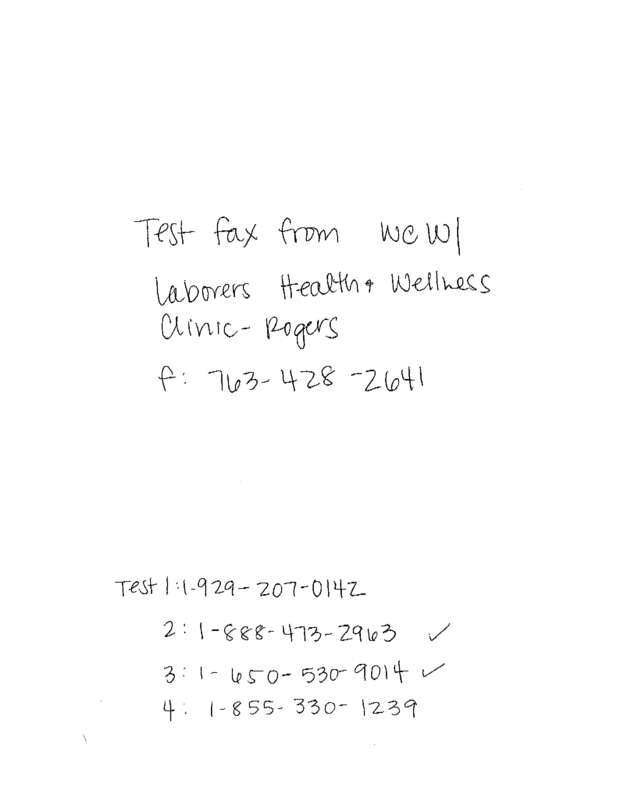 Test fax from WCW/
Laborers Health + Wellness
Clinic - Rogers
f: 763-428-2641
Test 1:1-929-207-0142
2: 1-888-473-2963 ✓
3: 1-650-530-9014 ✓
4: 1-855-330-1239